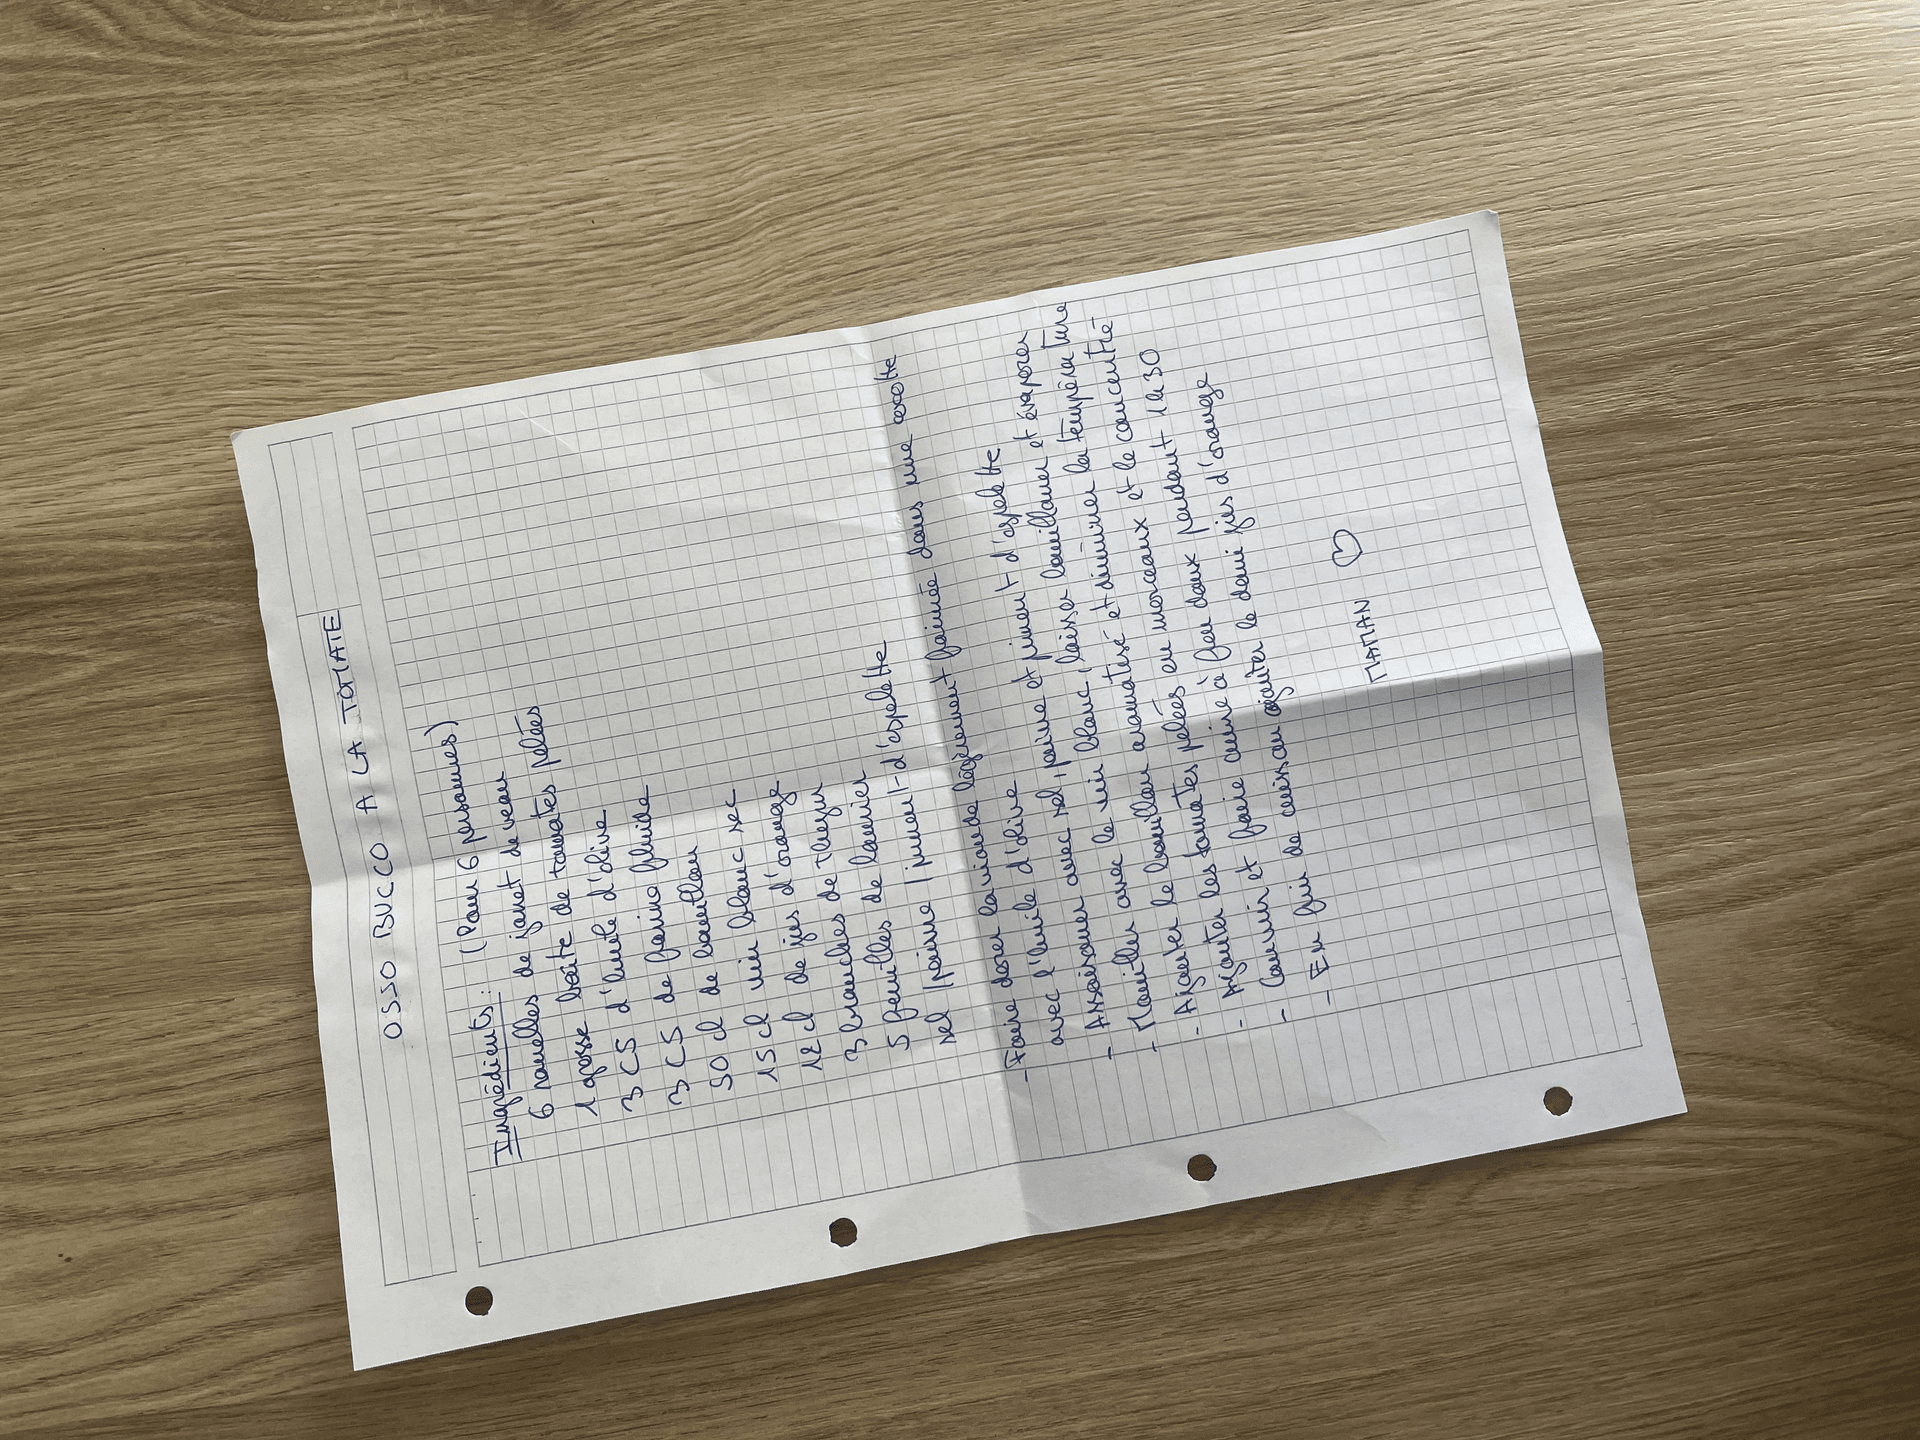 OSSO BUCCO A LA TOMATE
Ingrédients : (Pour 6 personnes)
6 rouelles de jaret de veau
1 grosse boite de tomates pelées
3 CS d'huile d'olive
3 CS de farine fluide
50 cl de bouillon
15 cl vin blanc sec
12 cl de jus d'orange
3 branches de thym
5 feuilles de laurier
sel / poivre / piment d'espelette
- Faire dorer la viande légèrement farinée dans une cocotte
avec l'huile d'olive
- Assaisoner avec sel, poivre et piment d'espelette
- Mouiller avec le vin blanc, laisser bouillonner et évaporer
- Ajouter le bouillon aromatisé et diminuer la température
- Ajouter les tomates pelées en morceaux et le concentré
- Couvrir et faire cuire à feu doux pendant 1h30
- En fin de cuisson ajouter le demi jus d'orange
MAMAN ♡